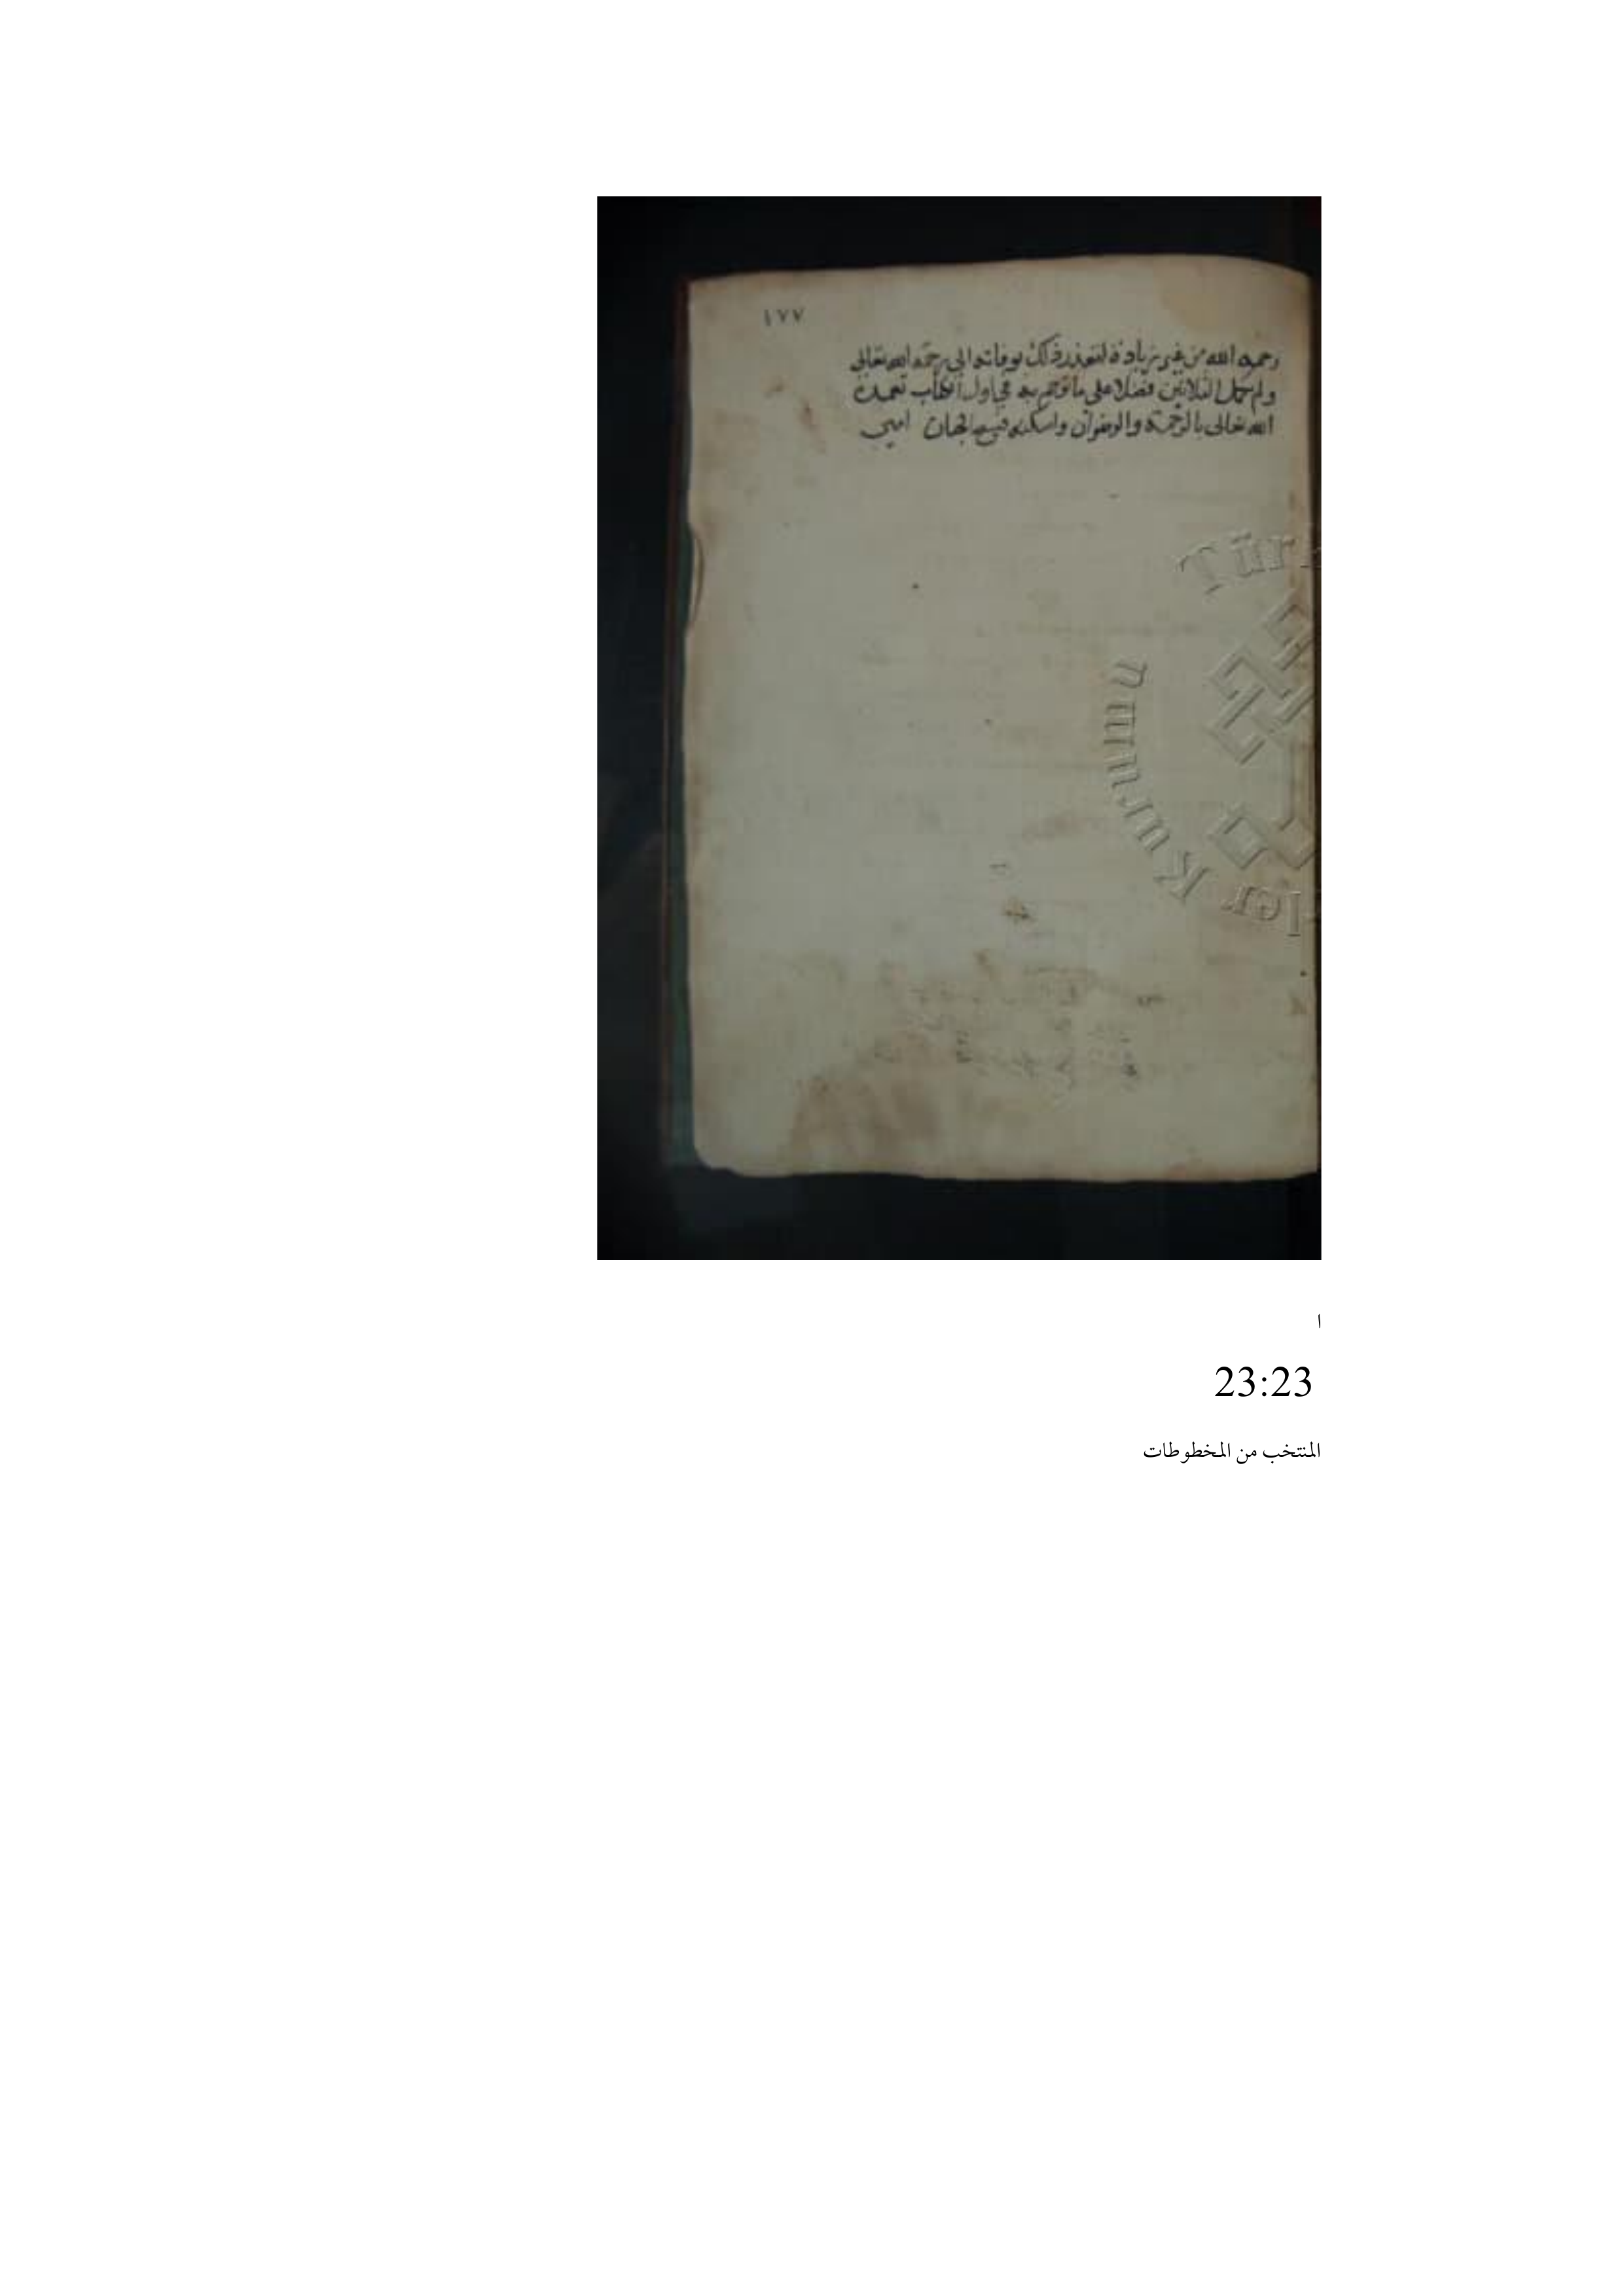 ١٧٧
رحمه الله من غير زيادة لتعذر ذلك بوفاته الى رحمة الله تعالى
ولم يكمل الثلاثين فضلا على ما ترجم به في اول الكتاب تغمده
الله تعالى بالرحمة والرضوان واسكنه فسيح الجنان امين
Tür
ler Kurumu
ا
23:23
المنتخب من المخطوطات